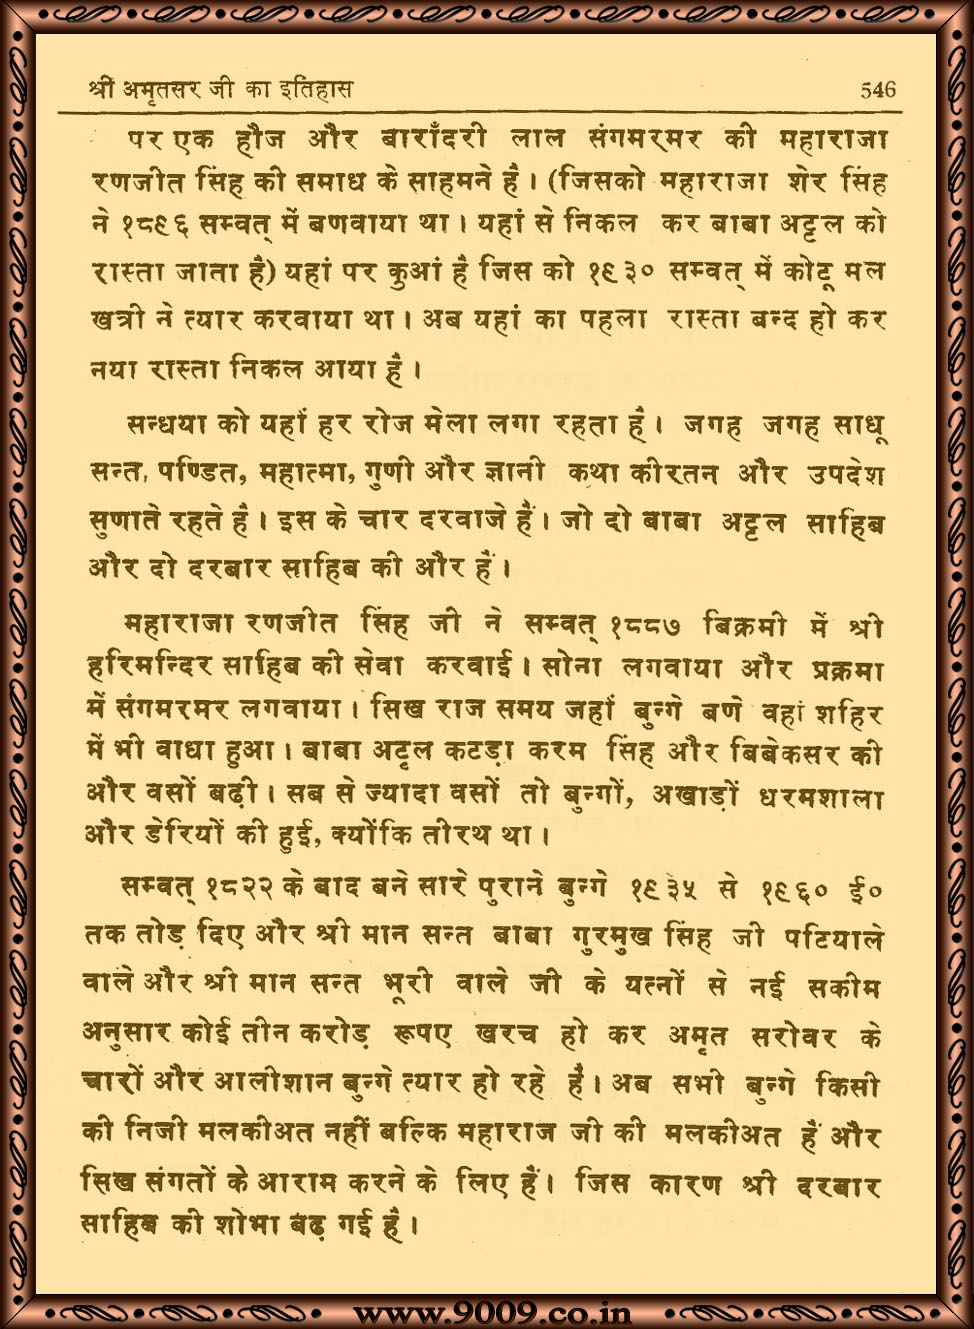 श्री अमृतसर जी का इतिहास 546
पर एक हौज और बाराँदरी लाल संगमरमर की महाराजा
रणजीत सिंह की समाध के साहमने है। (जिसको महाराजा शेर सिंह
ने १८९६ सम्वत् में बणवाया था। यहां से निकल कर बाबा अट्टल को
रास्ता जाता है) यहां पर कुआं है जिस को १९३० सम्वत् में कोटू मल
खत्री ने त्यार करवाया था। अब यहां का पहला रास्ता बन्द हो कर
नया रास्ता निकल आया है।
सन्धया को यहाँ हर रोज मेला लगा रहता है। जगह जगह साधू
सन्त, पण्डित, महात्मा, गुणी और ज्ञानी कथा कीरतन और उपदेश
सुणाते रहते है। इस के चार दरवाजे हैं। जो दो बाबा अट्टल साहिब
और दो दरबार साहिब की और हैं।
महाराजा रणजीत सिंह जी ने सम्वत् १८८७ बिक्रमी में श्री
हरिमन्दिर साहिब की सेवा करवाई। सोना लगवाया और प्रक्रमा
में संगमरमर लगवाया। सिख राज समय जहाँ बुन्गे बणे वहां शहिर
में भी वाधा हुआ। बाबा अट्टल कटड़ा करम सिंह और बिबेकसर की
और वसों बढ़ी। सब से ज्यादा वसों तो बुन्गों, अखाड़ों धरमशाला
और डेरियों की हुई, क्योंकि तीरथ था।
सम्वत् १८२२ के बाद बने सारे पुराने बुन्गे १९३५ से १९६० ई०
तक तोड़ दिए और श्री मान सन्त बाबा गुरमुख सिंह जी पटियाले
वाले और श्री मान सन्त भूरी वाले जी के यत्नों से नई सकीम
अनुसार कोई तीन करोड़ रूपए खरच हो कर अमृत सरोवर के
चारों और आलीशान बुन्गे त्यार हो रहे हैं। अब सभी बुन्गे किसी
की निजी मलकीअत नहीं बल्कि महाराज जी की मलकीअत हैं और
सिख संगतों के आराम करने के लिए हैं। जिस कारण श्री दरबार
साहिब की शोभा बढ़ गई है।
www.9009.co.in